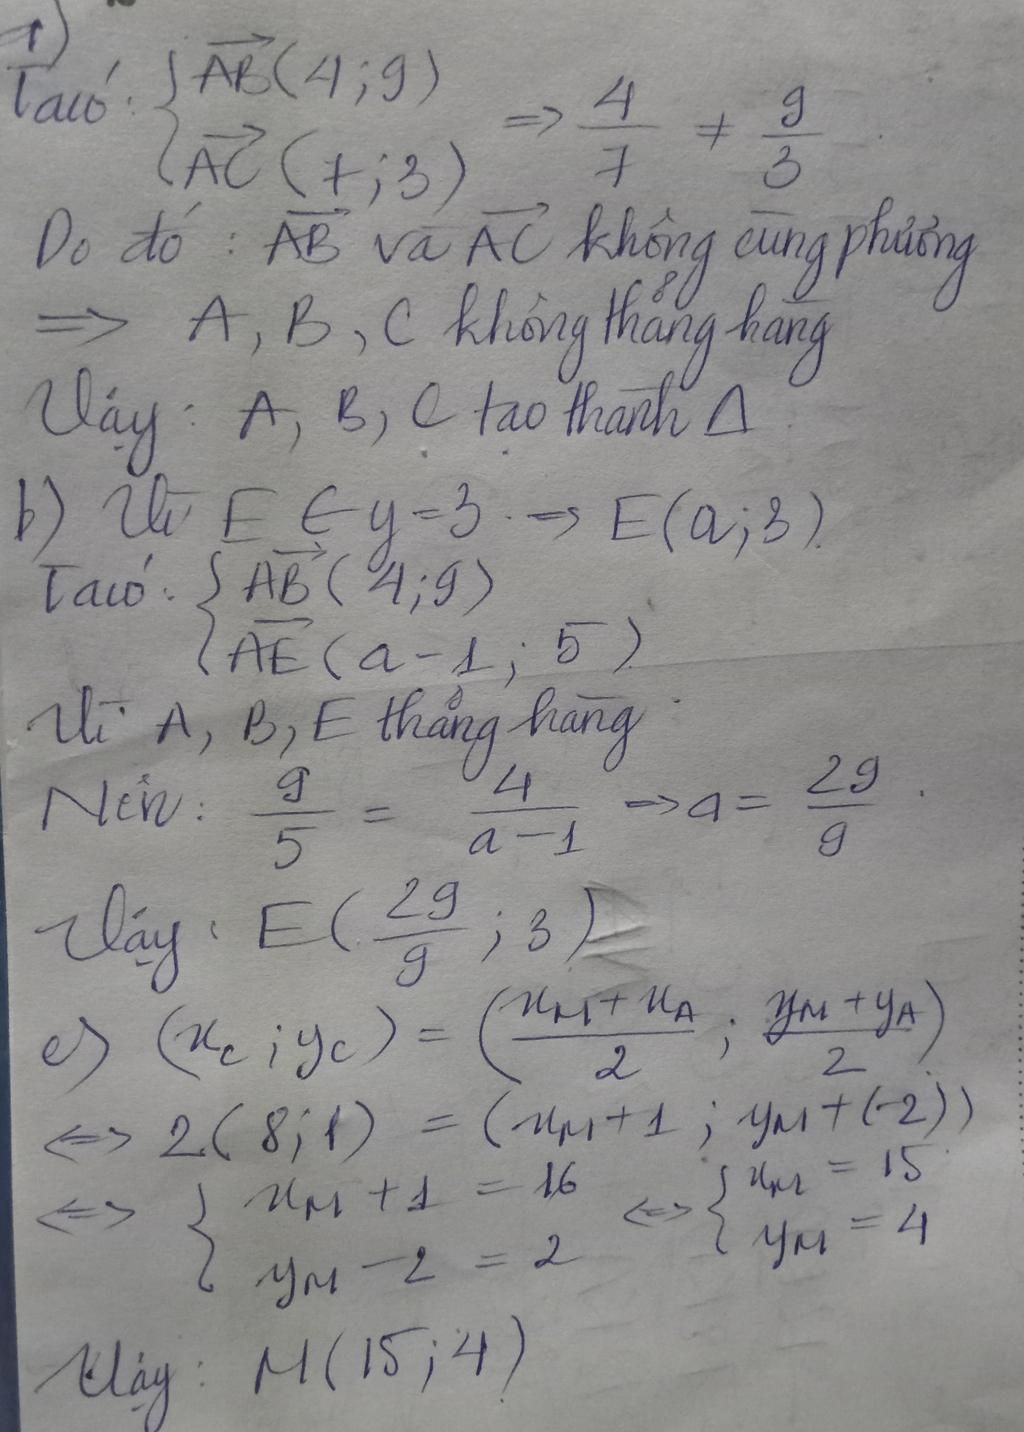 1)
Ta có: { \overrightarrow{AB}(4;9) \overrightarrow{AC}(7;3) => 4/7 ≠ 9/3
Do đó: \overrightarrow{AB} và \overrightarrow{AC} không cùng phương
=> A, B, C không thẳng hàng
Vậy: A, B, C tạo thành Δ
b) Vì E ∈ y=3 => E(a;3)
Ta có: { \overrightarrow{AB}(4;9) \overrightarrow{AE}(a-1;5)
Vì A, B, E thẳng hàng
Nên: 9/5 = 4/(a-1) => a = 29/9
Vậy: E(29/9;3)
c) (x_C;y_C) = ((x_M+x_A)/2; (y_M+y_A)/2)
<=> 2(8;1) = (x_M+1; y_M+(-2))
<=> { x_M+1 = 16 y_M-2 = 2 <=> { x_M = 15 y_M = 4
Vậy: M(15;4)